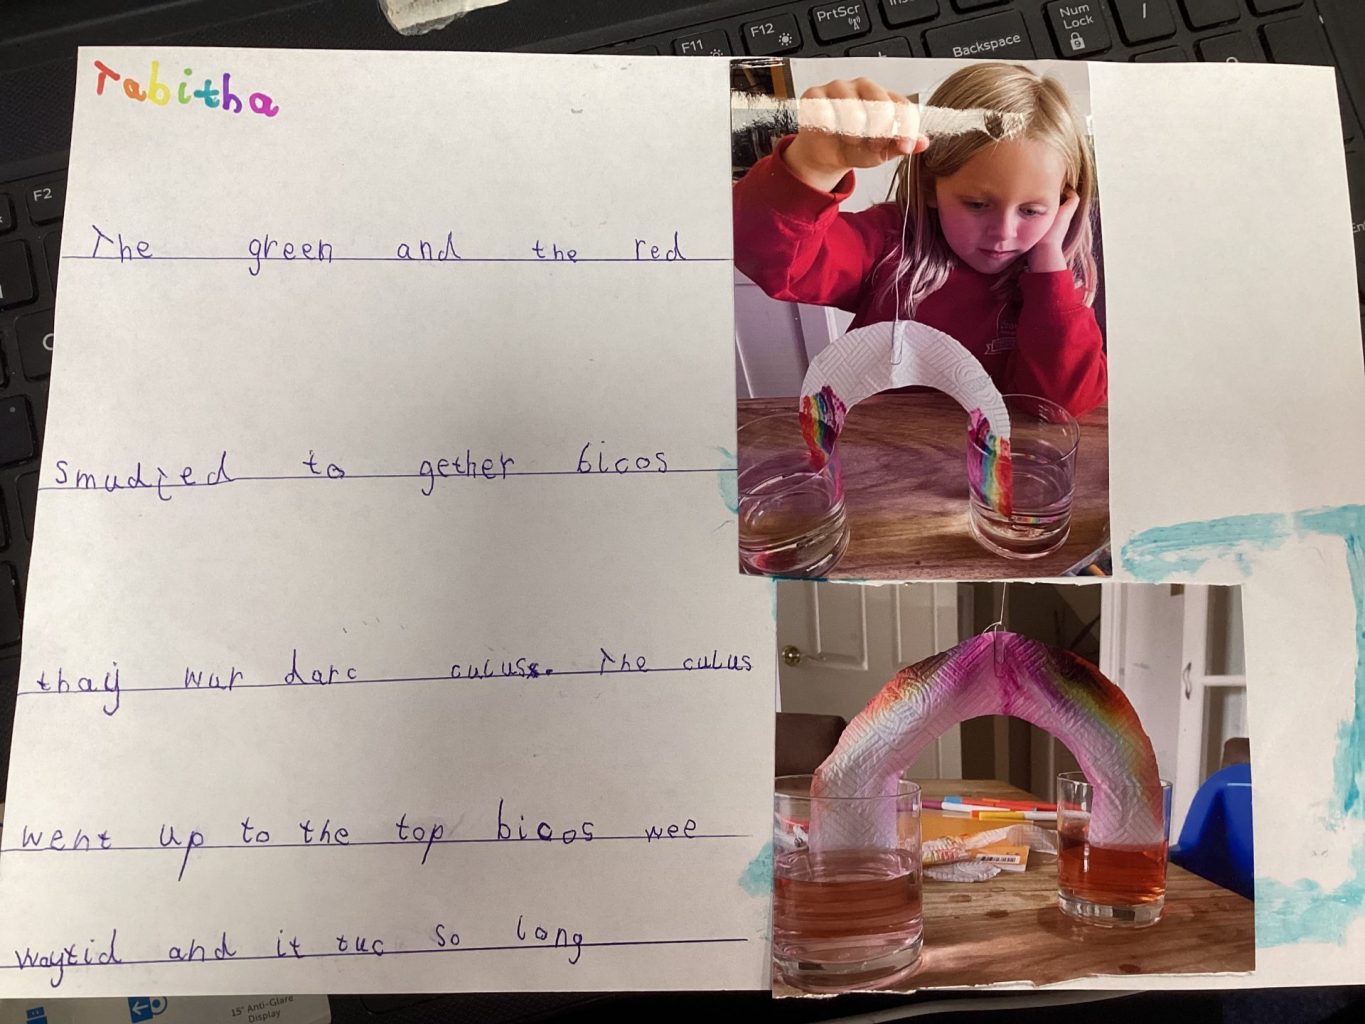 Tabitha
The green and the red
smudged to gether bicos
thay wur darc culus. The culus
went up to the top bicos wee
waytid and it tuc so long
F11
F12
PrtScr
Backspace
Num Lock
F2
15" Anti-Glare
Display